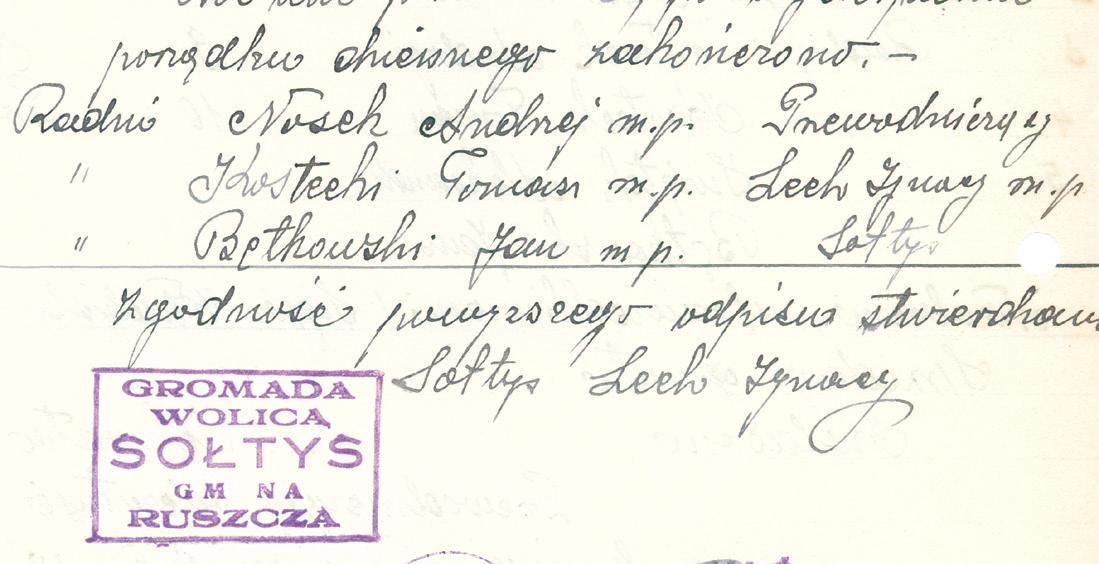 porządku dziennego zakończono. —
Radni Nosek Andrzej m.p. Przewodniczący
" Kostecki Tomasz m.p. Lech Ignacy m.p
" Bętkowski Jan m p. Sołtys
Zgodność powyższego odpisu stwierdzam
Sołtys Lech Ignacy
GROMADA
WOLICA
SOŁTYS
GM NA
RUSZCZA